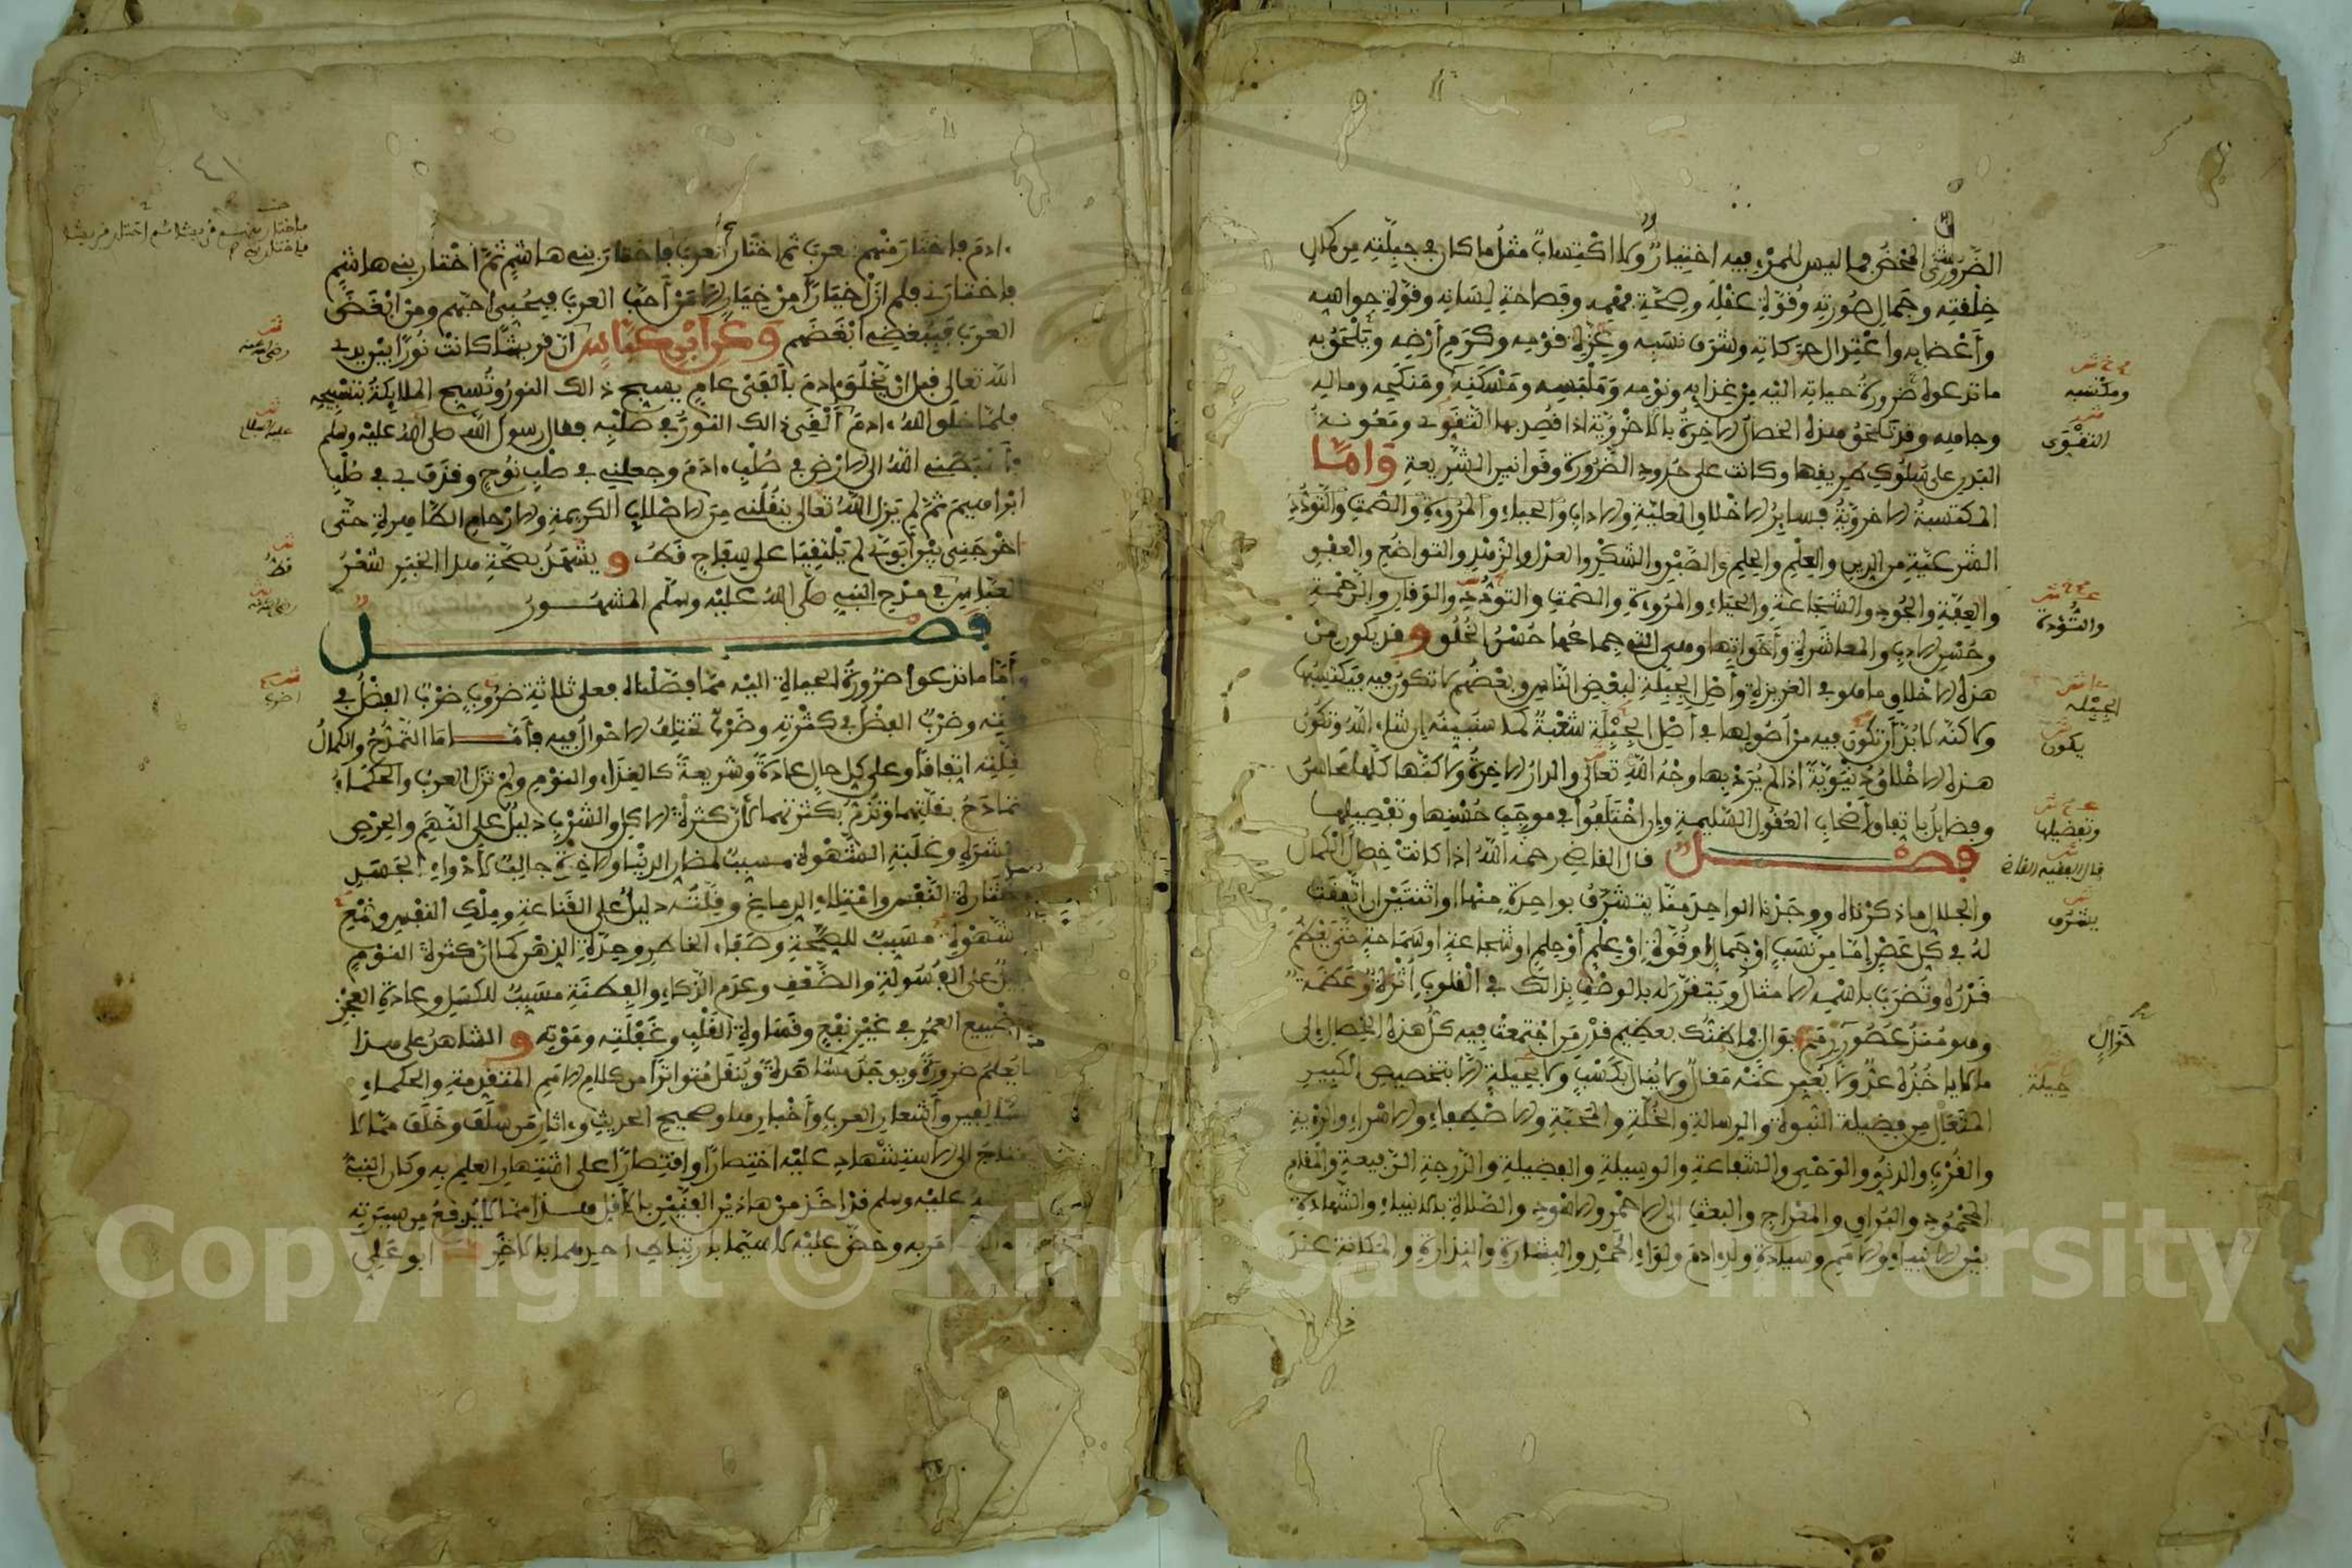 الضروري المحض فما ليس للمرء فيه اختيار ولا اكتساب مثل ما كان في جبلته من كمال
خلقته وجمال صورته وقوة عقله وصحة فهمه وفصاحة لسانه وقوة حواسه
وأعضائه واعتدال حركاته وشرف نسبه وعزة قومه وكرم أرضه ويلحق به
ما تدعوه ضرورة حياته اليه من غذائه ونومه وملبسه ومسكنه ومنكحه وماله
وجاهه وقد تلحق هذه الخصال الاخرة بالاخروية اذا قصد بها التقوى ومعونة
البدن على سلوك طريقها وكانت على حدود الضرورة وقوانين الشريعة وأما
المكتسبة الاخروية فسائر الاخلاق العلية والاداب
الشرعية من الدين والعلم والحلم والصبر والشكر والعدل والزهد والتواضع والعفو
والعفة والجود والشجاعة والحياء والمروءة والصمت والتودد والوقار والرحمة
وحسن الادب والمعاشرة وأخواتها وهي التي جماعها حسن الخلق وقد يكون من
هذه الاخلاق ما هو في الغريزة وأصل الجبلة لبعض الناس وبعضهم لا تكون فيه فيكتسبها
ولاكنه لا بد أن تكون فيه من أصولها في أصل الجبلة شعبة كما سنبينه إن شاء الله وتكون
هذه الاخلاق دنيوية اذا لم يرد بها وجه الله تعالى والدار الاخرة ولاكنها كلها محاسن
وفضائل باتفاق أصحاب العقول السليمة وإن اختلفوا في موجب حسنها وتفضيلها
فصل قال القاضي رحمه الله اذا كانت خصال الكمال
والجلال ما ذكرناه ووجدنا الواحد منا يتشرف بواحدة منها او اثنتين إن اتفقت
له في كل عصر إما من نسب أو جمال او قوة أو علم أو حلم او شجاعة او سماحة حتى يعظم
قدره وتضرب باسمه الامثال ويتقرر له بالوصف بذالك في القلوب أثرة وعظمة
وهو منذ عصور خوال رمم بوال فما ظنك بعظيم قدر من اجتمعت فيه كل هذه الخصال إلى
ما لا يأخذه عد ولا يعبر عنه مقال ولا ينال بكسب ولا بحيلة الا بتخصيص الكبير
المتعال من فضيلة النبوة والرسالة والخلة والمحبة والاصطفاء والاسراء والرؤية
والقرب والدنو والوحي والشفاعة والوسيلة والفضيلة والدرجة الرفيعة والمقام
المحمود والبراق والمعراج والبعث الى الاحمر والاسود والصلاة بالانبياء والشهادة
بين الانبياء والامم وسيادة ولد ادم ولواء الحمد والبشارة والنذارة والمكانة عند
ومكسبه
التقوى
والتؤدة
الجبلة
يكون
وتفضيلها
قال الفقيه القاضي
يشرف
خوال
حيلة
ادم فاختار منهم العرب ثم اختار العرب فاختار بني هاشم ثم اختار بني هاشم
فاختارني فلم ازل خيارا من خيار الا من أحب العرب فبحبي احبهم ومن ابغض
العرب فببغضي أبغضهم وعن ابن عباس ان قريشا كانت نورا بين يدي
الله تعالى قبل ان يخلق ادم بألفي عام يسبح ذالك النور وتسبح الملائكة بتسبيحه
فلما خلق الله ادم ألقى ذالك النور في صلبه فقال رسول الله صلى الله عليه وسلم
فأهبطني الله الى الارض في صلب ادم وجعلني في صلب نوح وقذف بي في صلب
ابراهيم ثم لم يزل الله تعالى ينقلني من الاصلاب الكريمة والارحام الطاهرة حتى
اخرجني بين أبوي لم يلتقيا على سفاح قط ويشهد بصحة هذا الخبر شعر
العباس في مدح النبي صلى الله عليه وسلم المشهور
فصل
وأما ما تدعوا ضرورة الحياة اليه مما فصلناه فعلى ثلاثة ضروب ضرب الفضل في
قلته وضرب الفضل في كثرته وضرب تختلف الاحوال فيه فأما ما التمدح والكمال
بقلته اتفاقا وعلى كل حال عادة وشريعة كالغذاء والنوم ولم تزل العرب والحكماء
تتمادح بقلتهما وتذم بكثرتهما لأن كثرة الاكل والشرب دليل على النهم والحرص
والشره وغلبة الشهوة مسبب لمضار الدنيا والاخرة جالب لأدواء الجسد
وخثارة النفس وامتلاء الدماغ وقلته دليل على القناعة وملك النفس وقمع
الشهوة مسبب للصحة وصفاء الخاطر وحدة الذهن كما ان كثرة النوم
دليل على الفسولة والضعف وعدم الذكاء والفطنة مسبب للكسل وعادة العجز
وتضييع العمر في غير نفع وقساوة القلب وغفلته وموته والشاهد على هذا
ما يعلم ضرورة ويوجد مشاهدة وينقل متواترا من كلام الامم المتقدمة والحكماء
السالفين وأشعار العرب وأخبارها وصحيح الحديث واثار من سلف وخلف مما لا
يحتاج الى الاستشهاد عليه اختصارا واقتصارا على اشتهار العلم به وكان النبي
عليه وسلم قد اخذ من هاذين الفنين بالاقل هذا مما لا يدفع من سيرته
امر به وحض عليه لا سيما بارتباط احدهما بالاخر ابو علي
رضي الله عنه
عليه السلام
قط
Copyright © King Saud University